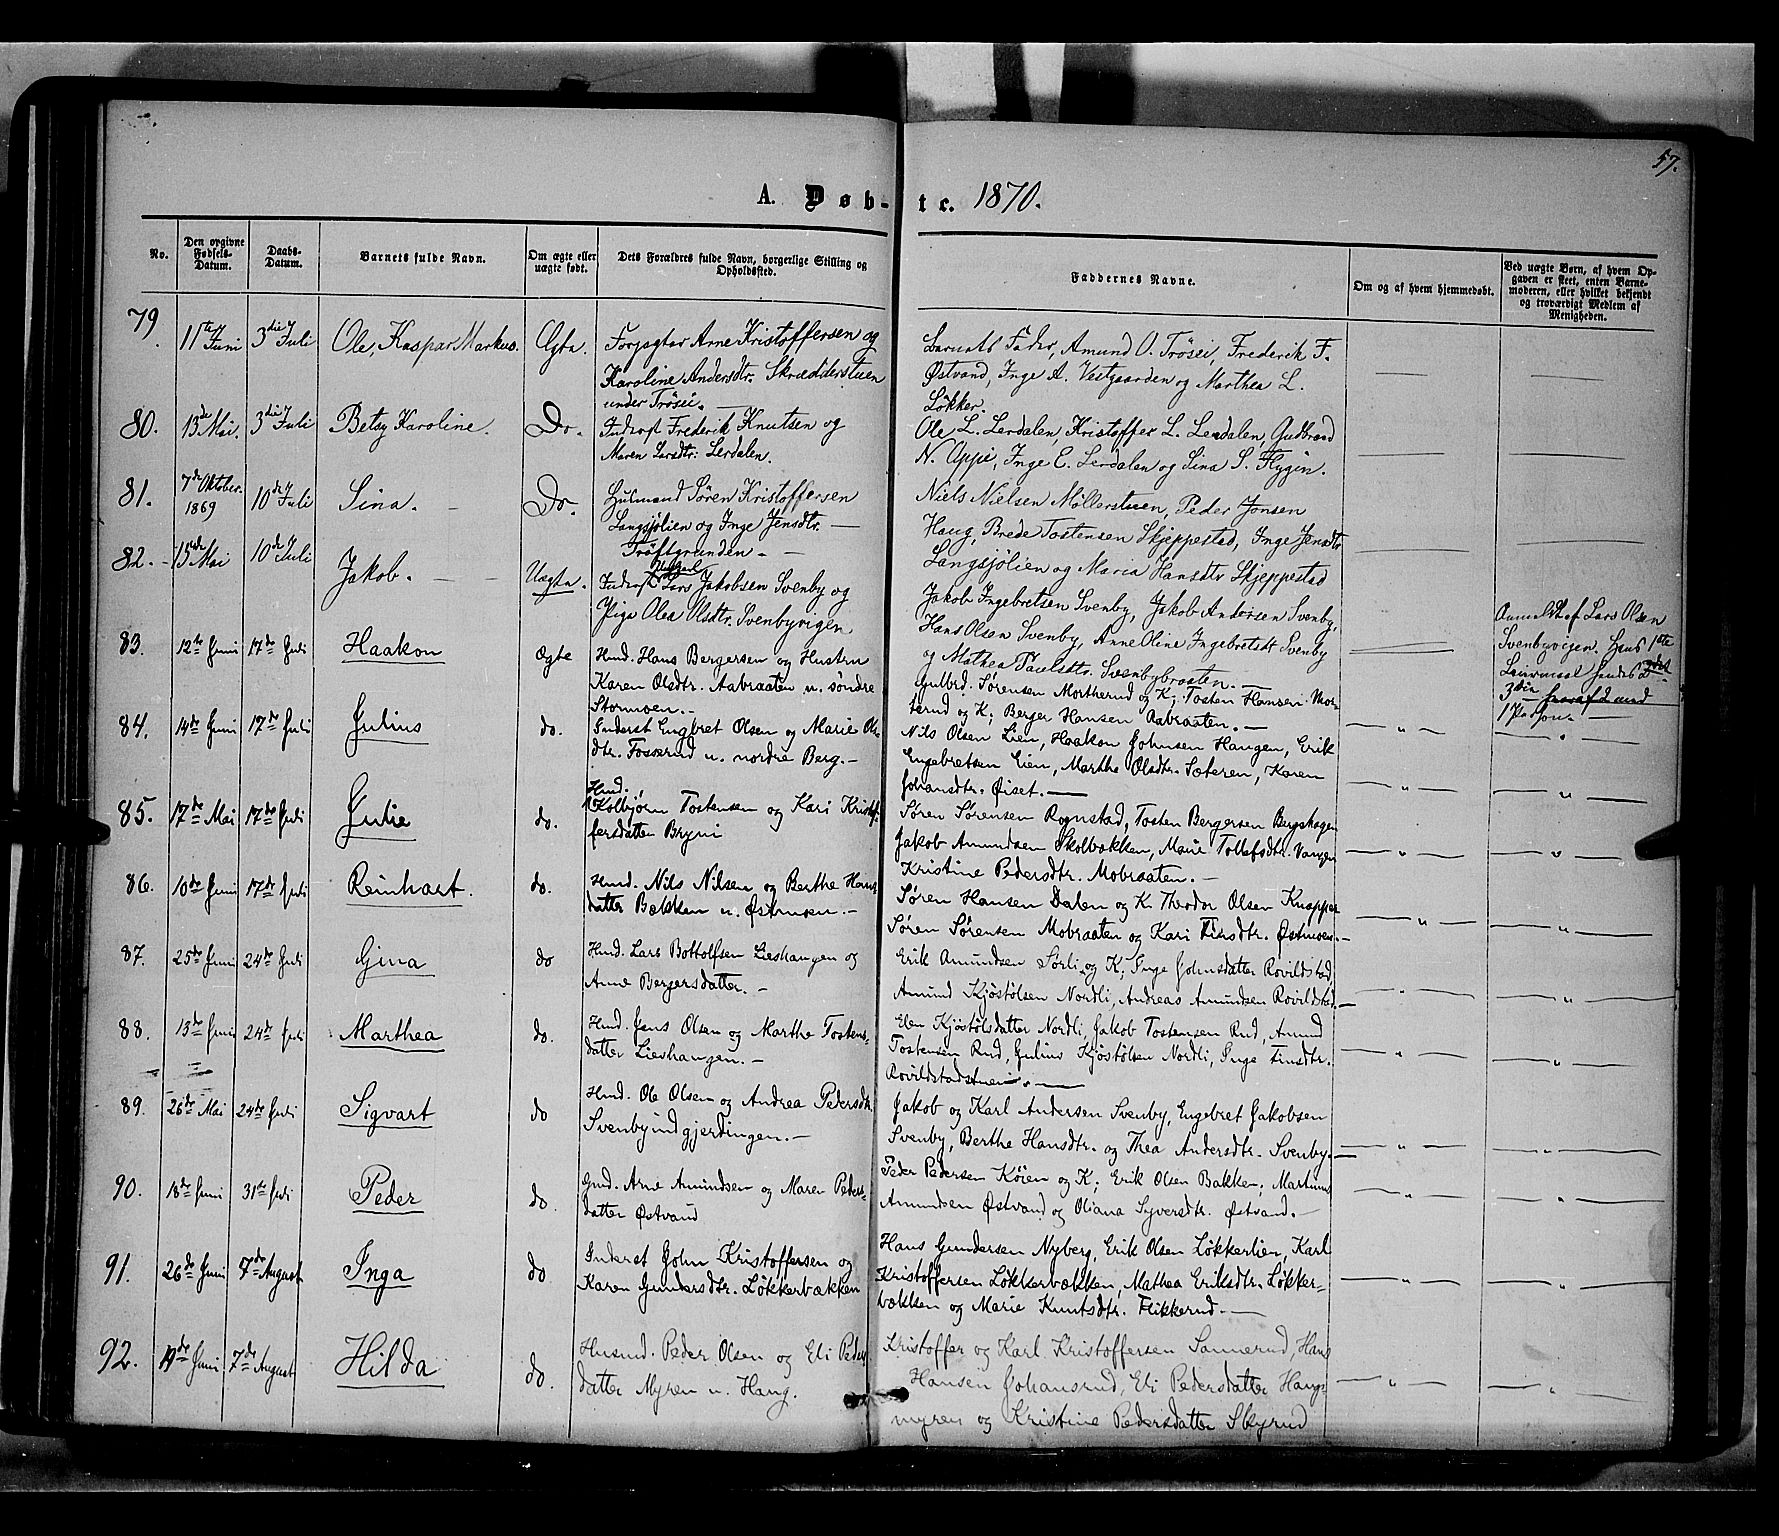 57.
A. Døb-te. 1870.
No.
Den opgivne Fødsels-Datum.
Daabs-Datum.
Barnets fulde Navn.
Om ægte eller uægte født.
Dets Forældres fulde Navn, borgerlige Stilling og Opholdssted.
Faddernes Navne.
Om og af hvem hjemmedøbt.
Ved uægte Børn, af hvem Op-
gaven er skeet, enten Barne-
moderen, eller hvilket bekjendt
og troværdigt Medlem af
Menigheden.
79. 11te Juni 3die Juli Ole, Kaspar Markus. Ægte.
Forpagter Arne Kristoffersen og
Karoline Andersdtr. Skrædderstuen
under Trøsei.
Barnets Fader, Amund O. Trøsei, Frederik F.
Østvand, Inge A. Vestgaarden og Marthea L.
Løkker.
80. 13de Mai. 3die Juli Betsy Karoline. Do.
Inderst Frederik Knutsen og
Maren Larsdtr: Lerdalen.
Ole L. Lerdalen, Kristoffer L. Lerdalen, Gudbrand
N. Oppi, Inge E. Lerdalen og Sina S. Flygin.
81. 7de Oktober. 1869 10de Juli Sina. Do.
Huusmand Søren Kristoffersen
Langsjølien og Inge Jensdtr.
Trøftgrunden.
Niels Nielsen Møllerstuen, Peder Jonsen
Haug, Brede Tostensen Skjeppestad, Inge Jensdtr
Langsjølien og Maria Hansdtr Skjeppestad
82. 15de Mai 10de Juli Jakob. Uægte.
Inderst Lars Jakobsen Svenby og
Pige Olea Olsdtr. Svenbyvigen
Jakob Ingebretsen Svenby, Jakob Andersen Svenby,
Hans Olsen Svenby, Anne Oline Ingebretsdt Svenby
og Mathea Paulsdtr. Svenbybraaten.
Anmeldt af Lars Olsen
Svenbyvigen. Hans 1ste
Leiermaal hendes 2det
83. 12te Juni 17de Juli Haakon Ægte
Hmd. Hans Bergersen og Hustru
Karen Olsdtr. Aabraaten u. søndre
Stormoen.
Gulbrd. Sørensen Mortherud og K; Tosten Hansen Mor-
terud og K; Berger Hansen Aabraaten.
84. 14de Juni 17de Juli Julius do.
Inderst Engbret Olsen og Marie Ols-
dtr. Fosserud u. nordre Berg.
Nils Olsen Lien, Haakon Johnsen Haugen, Erik
Engebretsen Lien, Marthe Olsdtr. Sæteren, Karen
Johansdtr. Øiset.
85. 17de Mai 17de Juli Julie do.
Hmd.
Kolbjørn Tostensen og Kari Kristof-
fersdatter Bryni
Søren Sørensen Rognstad, Tosten Bergersen Bergshagen
Jakob Amundsen Skolbækken, Marie Tollefsdtr. Vangen
Kristine Pedersdtr. Mobraaten.
86. 10de Juni 17de Juli Reinhart. do.
Hmd. Nils Nilsen og Berthe Hans-
datter Bækken u. Østmoen.
Søren Hansen Dalen og K. Theodor Olsen Knapper
Søren Sørensen Mobraaten og Kari Finsdtr. Østmoen.
87. 25de Juni 24de Juli Gina do
Hmd. Lars Bottolfsen Lieshaugen og
Anne Bergersdatter.
Erik Amundsen Sørli og K; Inge Johnsdatter Rovildstad,
Amund Kjøstølsen Nordli, Andreas Amundsen Rovildstad
88. 13de Juni 24de Juli Marthea do.
Hmd. Jens Olsen og Marthe Tostens-
datter Lieshaugen.
Elen Kjøstølsdatter Nordli, Jakob Tostensen Rud, Amund
Tostensen Rud, Julius Kjøstølsen Nordli, Inge Finsdtr.
Rovildstadstuen.
89. 26de Mai 24de Juli Sigvart do
Hmd. Ole Olsen og Andrea Pedersdtr.
Svenbyindgjerdingen.
Jakob og Karl Andersen Svenby, Engebret Jakobsen
Svenby, Berthe Hansdtr. og Thea Andersdtr. Svenby.
90. 18de Juni 31te Juli Peder do
Gmd. Arne Amundsen og Maren Peders-
datter Østvand
Peder Pedersen Köien og K; Erik Olsen Bakken; Martinus
Amundsen Østvand og Oliana Syversdtr. Østvand.
91. 26de Juni 7de August Inga do
Inderst John Kristoffersen og
Karen Gundersdtr. Løkkerbækken
Hans Gundersen Nyberg, Erik Olsen Løkkerlien, Karl
Kristoffersen Løkkerbækken, Mathea Eriksdtr. Løkker-
bækken og Marie Knutsdtr. Flikkerud.
92. 19de Juni 7de August Hilda do.
Husmd. Peder Olsen og Eli Peders-
datter Myren u. Haug.
Kristoffer og Karl Kristoffersen Sannerud, Hans
Hansen Johansrud, Eli Pedersdatter Haug-
myren og Kristine Pedersdatter Skyrud